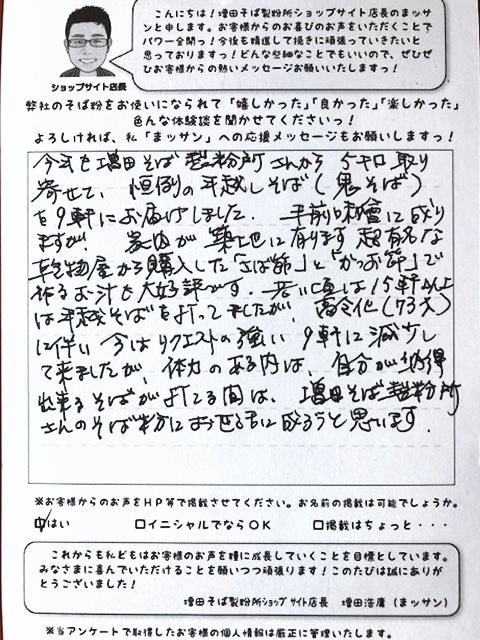 こんにちは！増田そば製粉所ショップサイト店長のまッサ
ンと申します。お客様からのお喜びのお声をいただくことで
パワー全開っ！今後も精進して挽きに頑張っていきたいと
思っておりますっ！どんな些細なことでもいいので、ぜひぜ
ひお客様からの熱いメッセージお願いいたしますっ！
ショップサイト店長
弊社のそば粉をお使いになられて「嬉しかった」「良かった」「楽しかった」
色んな体験談を聞かせてくださいっ！
よろしければ、私「まッサン」への応援メッセージもお願いしますっ！
今年も増田そば製粉所さんから 5キロ取り
寄せて、恒例の年越しそば（鬼そば）
を9軒にお届けしました。手前味噌に成り
ますが、 が築地に有ります超有名な
乾物屋から購入した「さば節」と「かつお節」で
作るお汁も大好評です。若い頃は15軒以上
は年越そばを打ってましたが、高令化（73才）
に伴い 今はリクエストの強い 9軒に減少し
て来ましたが、体力のある内は、自分が納得
出来るそばが打てる間は、増田そば製粉所
さんのそば粉にお世話に成ろうと思います。
※お客様からのお声をHP等で掲載させてください。お名前の掲載は可能でしょうか。
☑はい □イニシャルでならOK □掲載はちょっと・・・
これからも私どもはお客様のお声を糧に成長していくことを目標としています。
みなさまに喜んでいただけることを願いつつ頑張ります！このたびは誠にありが
とうございました！
増田そば製粉所ショップサイト店長 増田浩庸（まッサン）
※当アンケートで取得したお客様の個人情報は厳正に管理いたします。